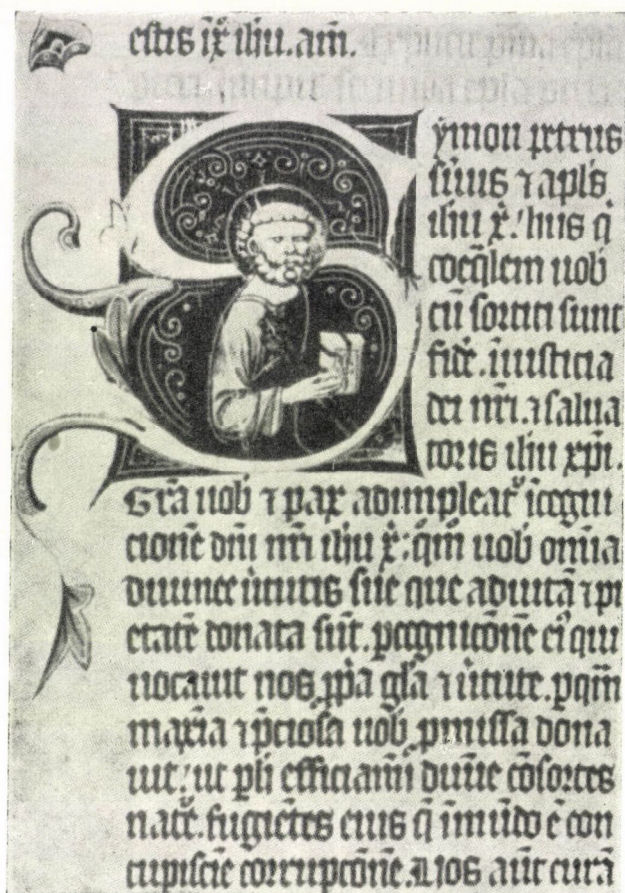 estis ix̄ ihū. am̄.
Symon petrus
s̄uus ⁊ apl̄s
ihū x̄. hiis q̄
coeq̄lem uob̄
cū sortiti sunt
fidē. ī iusticia
dei nr̄i. ⁊ salua
toris ihū xpī.
Gr̄a uob̄ ⁊ pax adimpleat᷑ ī cogni
cione dn̄i nr̄i ihū x̄: qm̄ uob̄ omīa
diuinee ūtutis sue que ad uitā ⁊ pi
etatē donata sūt. p cognicōnē ei᷒ qui
uocauit nos ꝓp̄a gl̄a ⁊ ūtute. p qm̄
maxīa ⁊ p̄ciosa uob̄ ꝓmissa dona
uit: ut p̄ h̄ efficiamī diuīe cōsortes
nat̄e. fugiētes eius q̄ ī mūdo ē con
cupiscīe corrupcōnē. Uos aūt curā